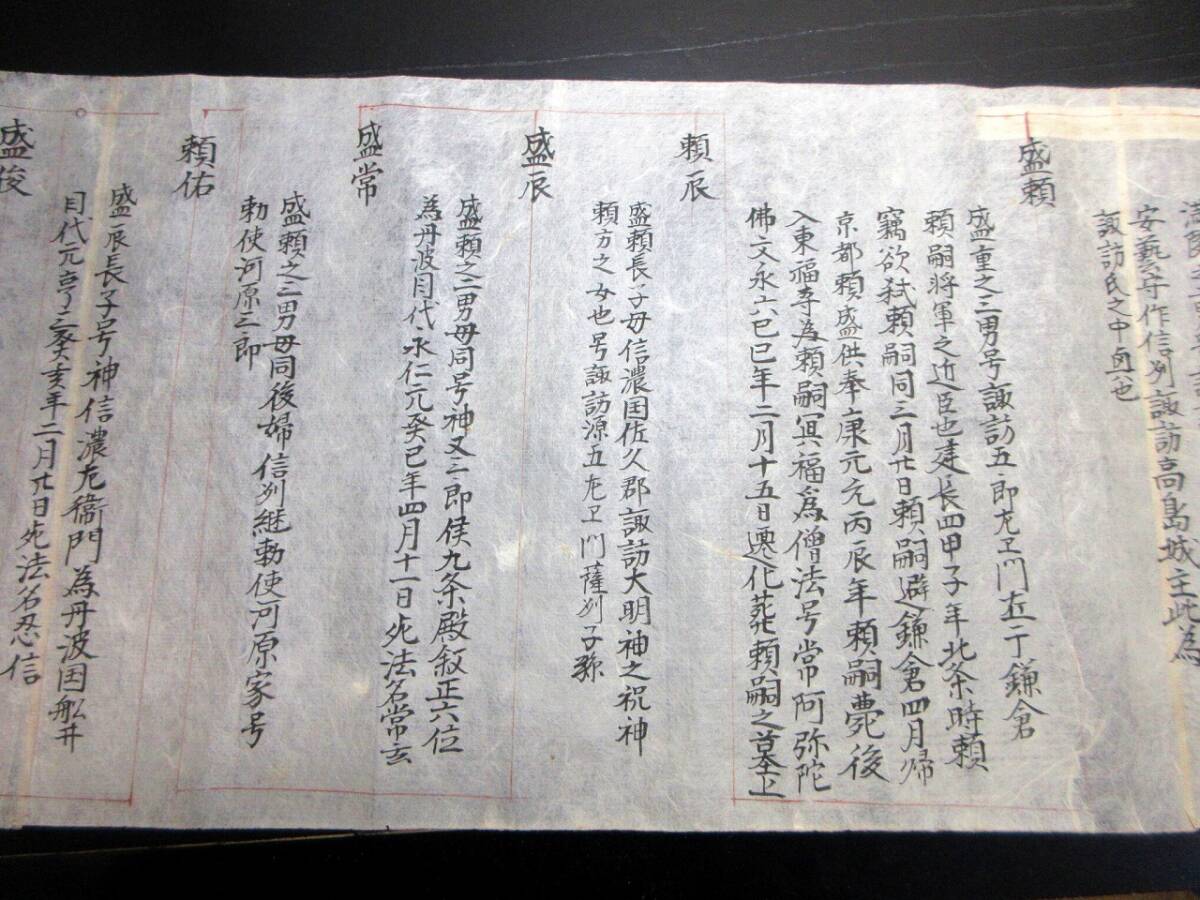 安藝守作信刕諏訪高島城主此為
諏訪氏之中也
盛頼
盛重之三男号諏訪五郎左卫門在于鎌倉
頼嗣將軍之近臣也建長四甲子年北条時頼
竊欲弑頼嗣同三月廿日頼嗣避鎌倉四月帰
京都頼盛供奉康元元丙辰年頼嗣薨後
入東福寺為頼嗣冥福為僧法号常阿弥陀
佛文永六巳巳年二月十五日遷化葬頼嗣之墓上
頼辰
盛頼長子母信濃国佐久郡諏訪大明神之祝神
頼方之女也号諏訪源五左卫門薩刕子孫
盛辰
盛頼之二男母同号神又三郎候九条殿叙正六位
為丹波目代永仁元癸巳年四月十一日死法名常玄
盛常
盛頼之三男母同後婦信刕継勅使河原家号
勅使河原三郎
頼佑
盛辰長子号神信濃左衛門為丹波国船井
目代元亨三癸亥年二月廿日死法名忍信
盛俊